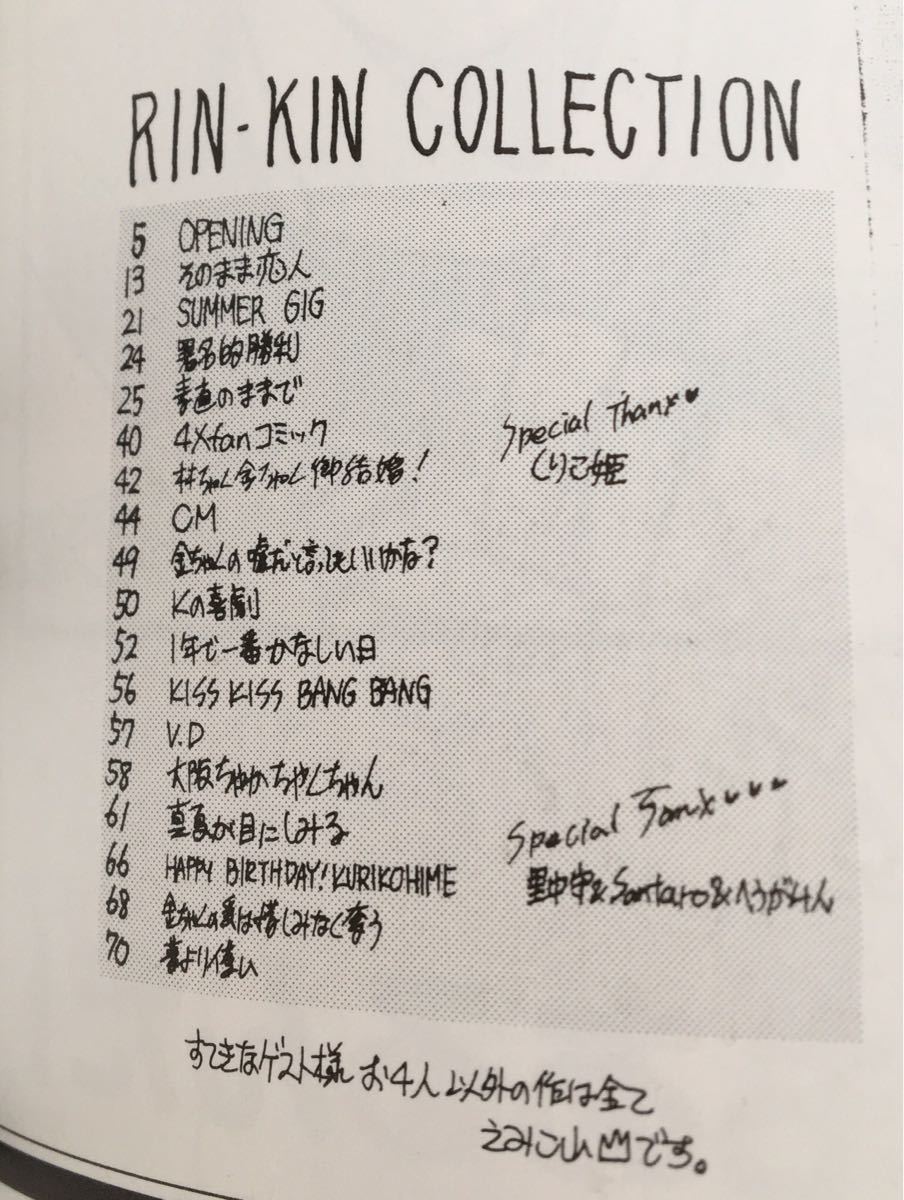 RIN-KIN COLLECTION
5 OPENING
13 そのまま恋人
21 SUMMER GIG
24 署名的勝利
25 素直のままで
40 4Xfanコミック
42 林ちゃん金ちゃん御結婚!
44 CM
49 金ちゃんの嘘だと言ってもいいかな?
50 Kの喜劇
52 1年で一番かなしい日
56 KISS KISS BANG BANG
57 V.D
58 大阪ちゃかちゃんちゃん
61 真夏が目にしみる
66 HAPPY BIRTHDAY!KURIKOHIME
68 金ちゃんの愛は惜しみなく奪う
70 より
Special Thanx♥
くりこ姫
Special Tanx♥♥♥
里中守&Santaro&
すてきなゲスト様 お4人以外の作は全て
えみこ山です。